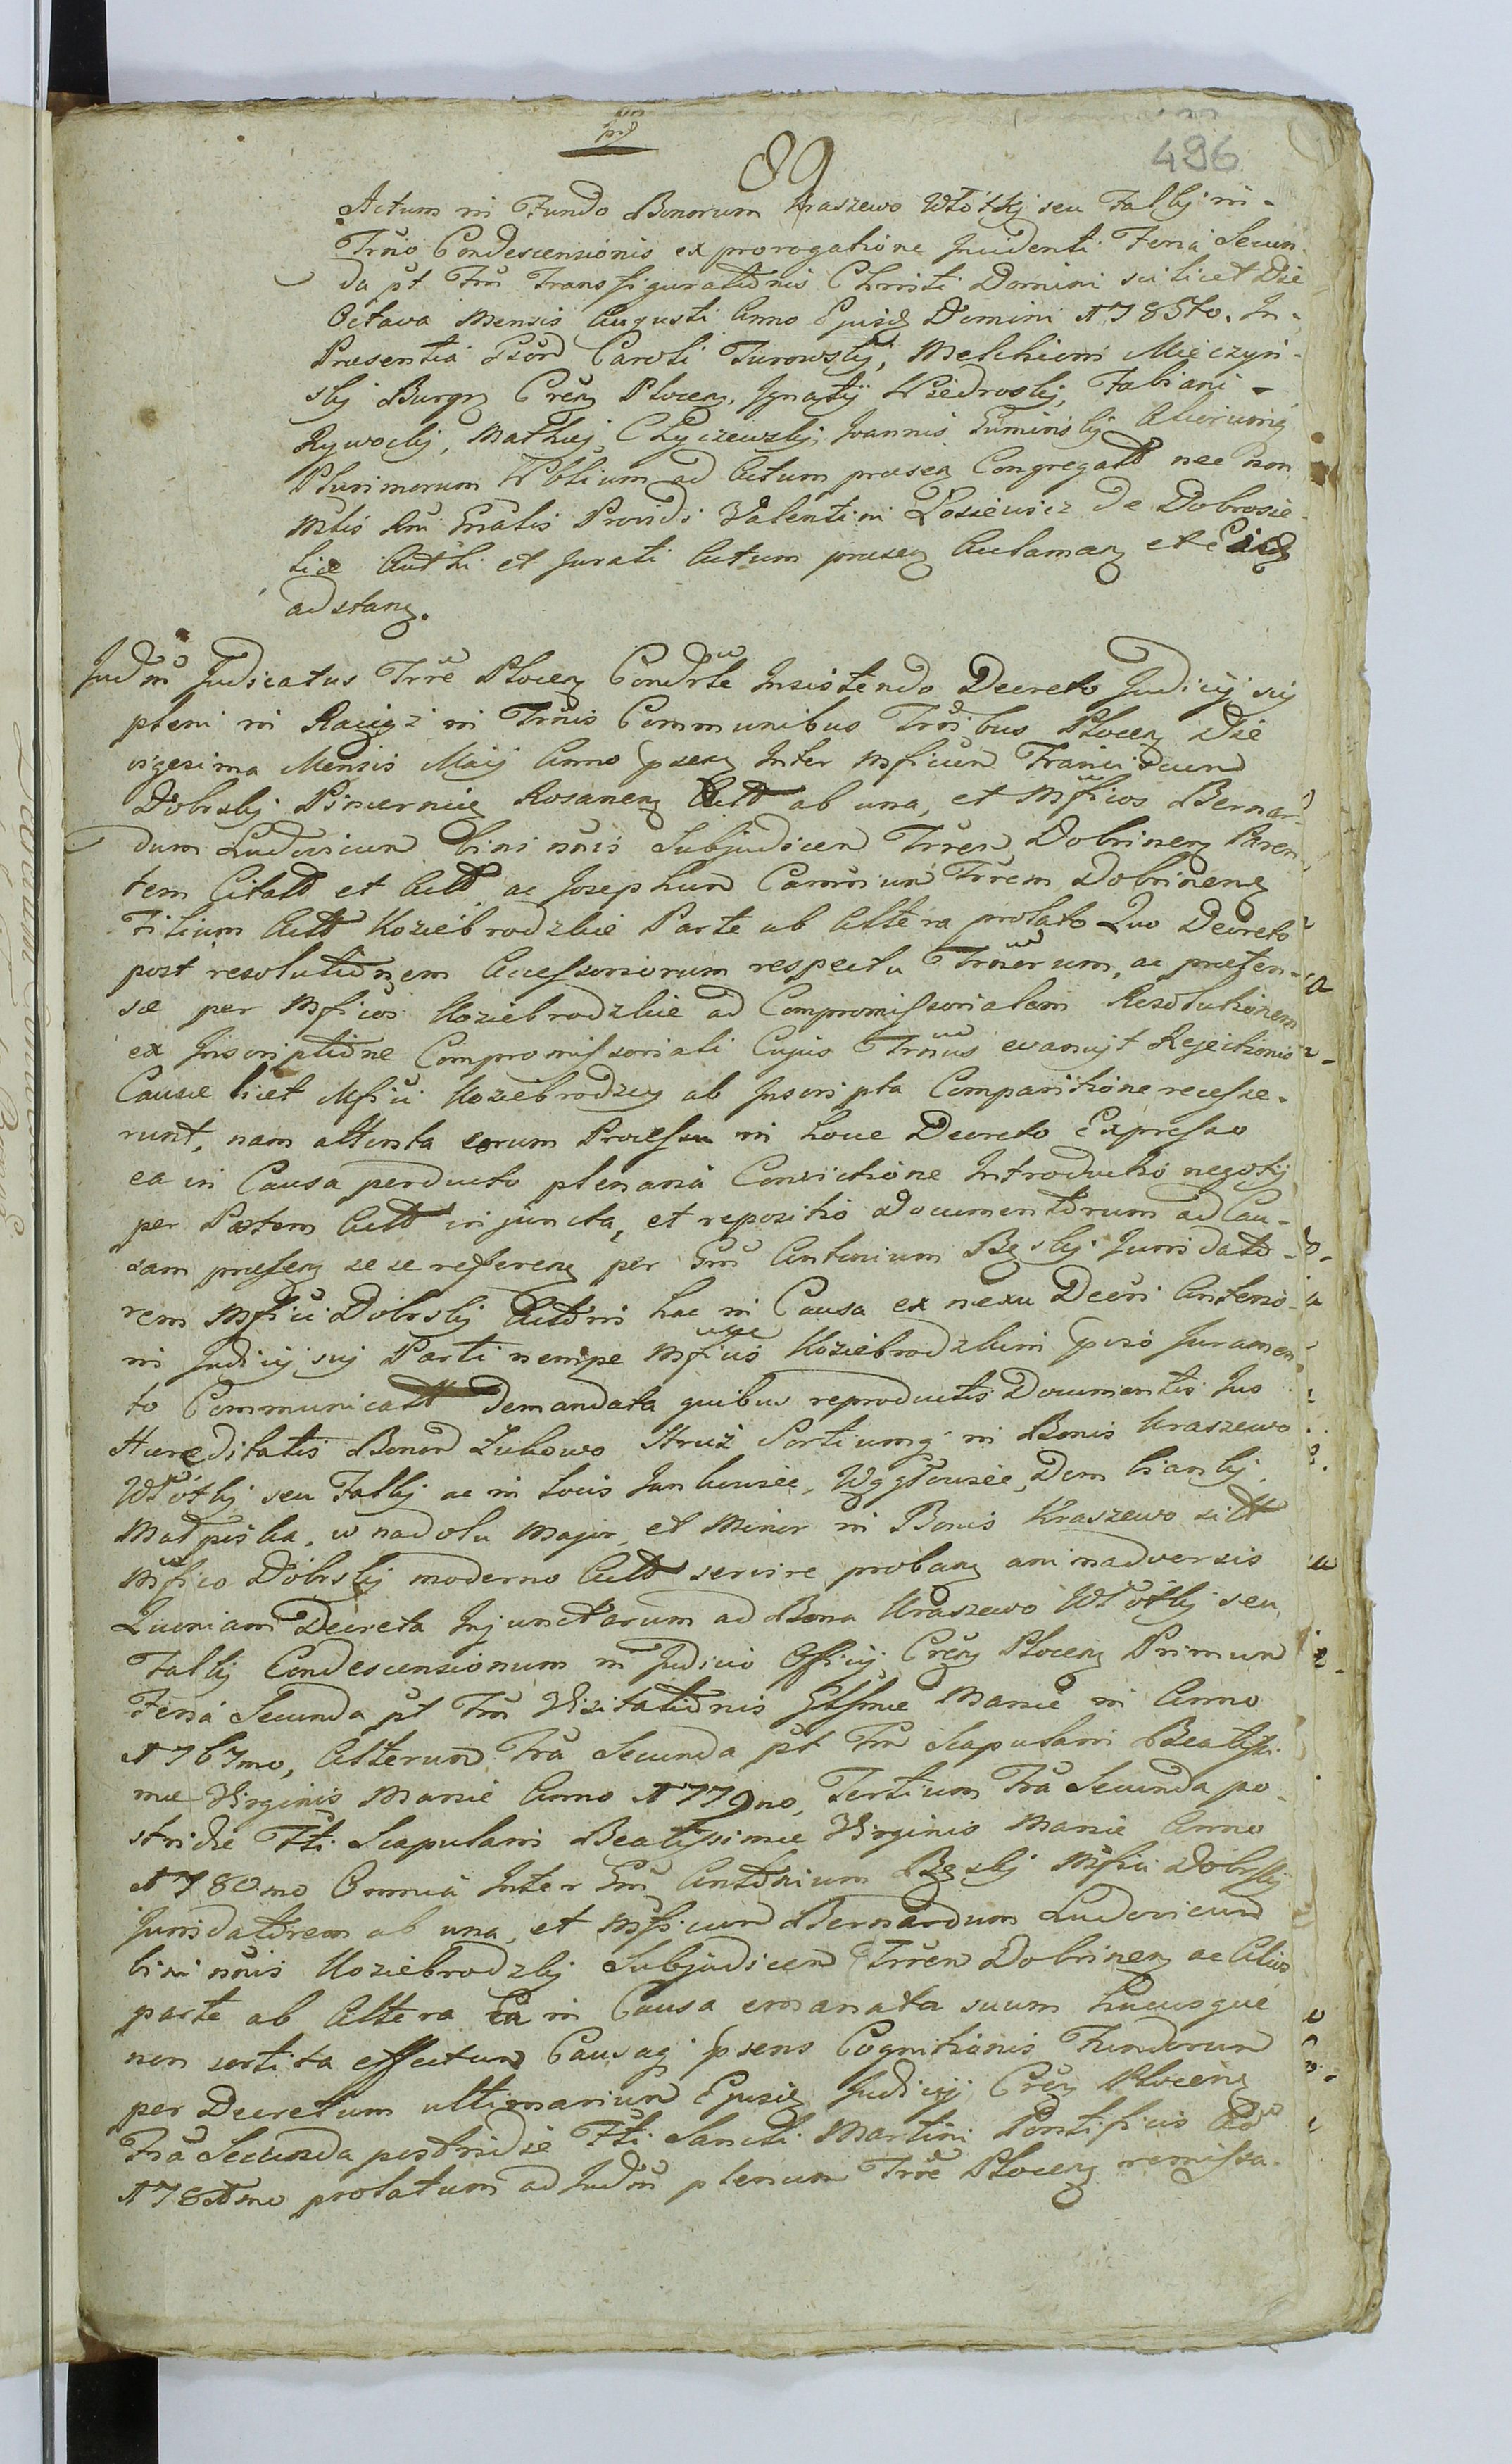 89
496
Actum in Fundo Bonorum Kraszewo Włotki seu Falki in
Trno Condescensionis ex prorogatione Incidenti Feria Secun
da pt Fm Transfigurationis Christi Domini scilicet Die
Octava Mensis Augusti Anno Ejusd Domini 1785to. In
Praesentia Caroli Turowskj, Melchioris Mieczyn
skj Burgr Plocen, Ignatij Fabiani
Rywockj, Mathej Chyczewskj, Joannis Tuminskj Aliorumq
Plurimorum Nobilium ad Actum praesen Congregatt nec non
Mtlis Rni Gnalis Providi Valentini Łosiewicz De Dobrosie
lice et Jurati Actum praesen
adstan.
Judm Judicatus Trre Plocen Condrle Insistendo Decreto Judicij sui
pleni in Raciąż in Trnis Communibus Plocen Die
vigesima Mensis Maij Anno psen Inter Mficum Franciscum
Dobrskj Pincernię Rosanen Actt ab una, et Mficos Bernar
dum Ludovicum bini nois Subjudicem Trren Dobrinen Paren
tem Citatt et Actt ac Josephum Trrem Dobrinens
Filium Actt Koziebrodzkie Parte ab Altera prolato Quo Decreto
post resolutionem Accessoriorum respectu ac praeten
sae per Mficos Koziebrodzkie ad Compromissorialem Resolutionem
ex Inscriptione Compromissoriali Cujus Trnus evanuit Rejectionis
Causae licet Mfici Koziebrodzcy ab Inscripta Comparitione recesse
runt, nam attenta eorum Processu in hocce Decreto Expresso
ea in Causa perducto plenaria Convictione Introductio negotij
per Partem Actt injuncta, et repositio Documentorum ad Cau
sam praesen se se referen per Gm Antonium Bęskj Juridato
rem Mfici Dobrskj hac in Causa ex nexu Decri Anterio
ri Judicij sui Parti nempe Mficis Koziebrodzkim pviso Juramen
to Communicatt Demandata quibus reproductis Documentis Jus
Haereditatis Bonor Żukowo Struż Sortiumq in Bonis Kraszewo
Włotki seu Falki ac in Locis Jankousie,
w nadolu Major et Minor in Bonis Kraszewo sitt
Mfico Dobrskj moderno Actt servire proban animadversis
Quoniam Decreta Injunctarum ad Bona Kraszewo Włotki seu
Falki Condescensionum in Judicio Officij Plocen Primum
Feria Secunda pt Fm Visitationis Mariae in Anno
1767mo, Alterum Fra Secunda pt Fm Scapularii Beatissi
mae Virginis Mariae Anno 1779no, Tertium Fra Secunda po
stridie Fti Scapularii Beatissimae Virginis Mariae Anno
1780mo Omnia Inter Gm Antonium Bęskj Mfici Dobrskj
Juridatorem ab una, et Mficum Bernardum Ludovicum
bini nois Koziebrodzkj Subjudicem Trren Dobrinen ac Alios
parte ab Altera Ea in Causa emanata suum hucusque
non sortita effectum Causaq psens Cognitionis Fundorum
per Decretum ultimarium Ejusd Judicij Plocens
Fra Secunda postridie Fti Sancti Martini Pontificis
prolatum ad Judm plenum Trre Plocen remissa